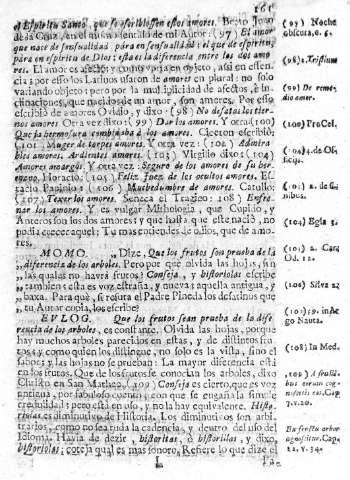 161
el Espiritu Santo, que se escribiessen estos amores. Beato Juan
de la Cruz, en el mismo sentido de mi Autor: (97) El amor
que nace de sensualidad para en sensualidad; el que de espiritu,
para en espiritu de Dios; esta es la diferencia entre los dos amo
res. El amor es afecto; y como varia en objeto, assi en esten-
cia: y por esso los Latinos usaron de amores en plural: no solo
variando objeto; pero por la multiplicidad de afectos, è in-
clinaciones, que nacidos de un amor, son amores. Por esso
escribiò de amores Ovidio, y dixo: (98) No desatas los tier-
nos amores. Otra vez dixo: (99) Dar los amores. Y otra (100)
Que la hermosura cambiaba los amores. Ciceron escribiò:
(101) Muger de torpes amores. Y otra vez: (102) Admira
bles amores. Ardientes amores. (103) Virgilio dixo: (104)
Amores amargos. Y otra vez: Seguro de los amores de su her-
mano. Horacio: (105) Feliz, fuez de los ocultos amores. E
stacio Papinio: (106) Muchedumbre de amores. Catulo:
(107) Texer los amores. Seneca el Tragico: 108) Enfre-
nar los amores. Y es vulgar Mithologia, que Cupido, y
Anteros son los dos amores; y que hasta que este naciò, no
podia crecer aquel; Tu mas entiendes de odios, que de amo-
res.
MOMO. Dize, Que los frutos son prueba de la
diferencia de los arboles. Pero por què olvida las hojas, sin
las quales no havrà frutos? Conseja, y historiolas escribe
tambien: esta es voz estraña, y nueva: aquella antigua, y
baxa. Para què, si refuta el Padre Pineda los desatinos que
tu Autor copia, los escribe?
EULOG. Que los frutos sean prueba de la dife
rencia de los arboles, es constante. Olvida las hojas, porque
hay muchos arboles parecidos en estas, y de distintos fru-
tos: y como quien los distingue, no solo es la vista, sino el
sabor; y las hojas no se prueban: La mayor diferencia està
en los frutos. Que de los frutos se conocian los arboles, dixo
Christo en San Matheo. (109) Conseja es cierto, que es voz
antigua, por fabuloso cuento, con que se engaña la simple
credulidad: pero està en uso, y no la hay equivalente. Histo
riolas es diminutivo de Historia. Los diminutivos son arbi-
trarios, como no sea ruda la cadencia, y dentro del uso del
Idioma. Havia de dezir, historitas, ò historillas, y dixo,
historiolas; coteja qual es mas sonoro. Refiere lo que dize el
L
(97) Noche
obscura, c. 6.
(98) 2. Tristium
(99) De reme-
dio amor.
(100) Pro Cel.
(104) Egl. 3.
(105) 2. Car.
Od. 12.
(106) Silva 2.
(108) In Med.